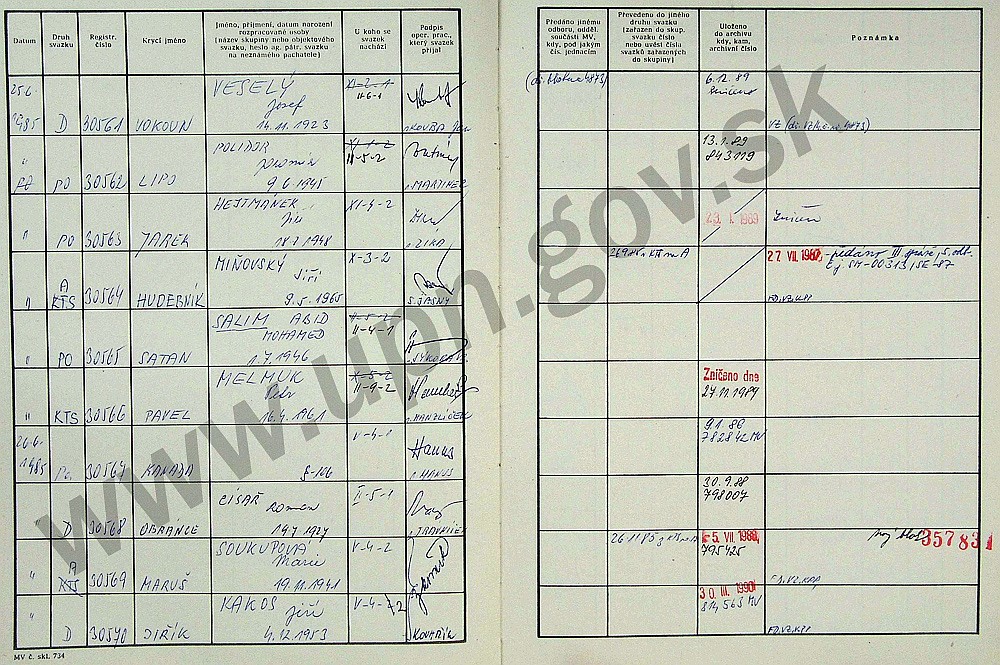 Datum
Druh svazku
Registr. číslo
Krycí jméno
Jméno, příjmení, datum narození
rozpracované osoby
(název skupiny nebo objektového
svazku, heslo ag. pátr. svazku
na neznámého pachatele)
U koho se svazek nachází
Podpis oper. prac., který svazek přijal
Předáno jinému odboru, odděl. součásti MV, kdy, pod jakým čís. jednacím
Převedeno do jiného druhu svazku (zařazen do skup. svazku číslo nebo uvést čísla svazků zařazených do skupiny)
Uloženo do archivu kdy, kam, archivní číslo
Poznámka
25.6. VESELÝ XI-2-1 6.12.89
Josef II-6-1
1985 D 30561 VOKOUN 14.11.1923 KOUBA Jan
POLIDOR XI-1-2 13.1.89
III-5-2 843119
PO 30562 LIPO 9.6.1945 MARTINEK
HEJTMÁNEK XI-4-2 23. I. 1989 Zničen
Jiří
" PO 30563 JAREK 18.7.1948 ZIKA
MIŇOVSKÝ X-3-2 27. VII. 1987
A Jiří
" KTS 30564 HUDEBNÍK 9.5.1965 S. JASNÝ FD.VZ.KPP
SALIM ABID II-5-2
MOHAMED II-4-1
" PO 30565 SATAN 1.7.1946 SÝKORA
MELMUK X-5-2 Zničeno dne
Petr II-9-2 27.11.1989
" KTS 30566 PAVEL 16.4.1961 HANZLÍČEK
26.6. V-4-1 Hanus 9.1.86
782842 MV
1985 30567 KANADA S-106 HANUS
CÍSAŘ II-5-1 30.9.88
Roman 798007
D 30568 OBRÁNCE 19.7.1927 TRÁVNÍČEK
SOUKUPOVÁ V-4-2 -5. VII. 1988 357831
A Marie 795425
" KTS 30569 MARUŠ 19.11.1941 FD.VZ.KPP
KAKOS Jiří V-4-2 30. III. 1990
814563 MV
" D 30570 JIŘÍK 4.12.1953 KOUHRÍK FD.VZ.KPP
MV č. skl. 734
www.upn.gov.sk